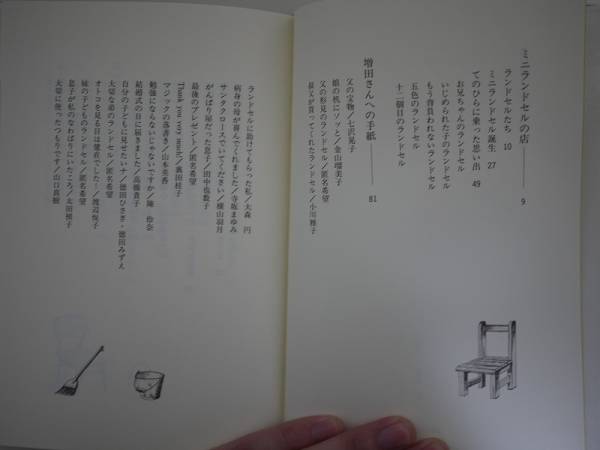 ミニランドセルの店 ―― 9
ランドセルたち 10
ミニランドセル誕生 27
てのひらに乗った思い出 49
お兄ちゃんのランドセル
いじめられた子のランドセル
もう背負われないランドセル
五色のランドセル
十二個目のランドセル
増田さんへの手紙 ―― 81
父の宝物/七沢晃子
娘の机にソッと/金山瑠美子
父の形見のランドセル/小川雅子
叔父が買ってくれたランドセル
ランドセルに助けてもらった私/大森 円
病身の母が喜んでくれました/寺坂まゆみ
サンタクロースでいてください/横山羽月
がんばり屋だった息子/田中也数子
最後のプレゼント/匿名希望
Thank you very much!/裏田桂子
マジックの落書き/山本美香
勉強にならないじゃないですか/陳 伶奈
結婚式の日に届きました/高橋貴子
自分の子どもに見せたいナ/徳田ひさき・徳田みずえ
大切な弟のランドセル/匿名希望
オトコを見る目は健在でした!/渡辺悦子
妹の子どものランドセル/匿名希望
息子が私のなわばりにいたころ/太田槙子
大切に使ったつもりです/山口真樹